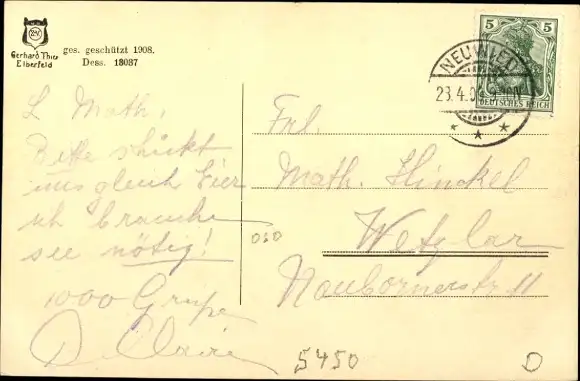 Gerhard Thier
Elberfeld
ges. geschützt 1908.
Dess. 18037
5 5
DEUTSCHES REICH
NEUWIED
23.4.09
L. Math,
Bitte schickt
uns gleich Eier
ich brauche
sie nötig!
1000 Grüße
D. Claire
Frl.
Math. Hinckel
Wetzlar
Naubornerstr 11
5450